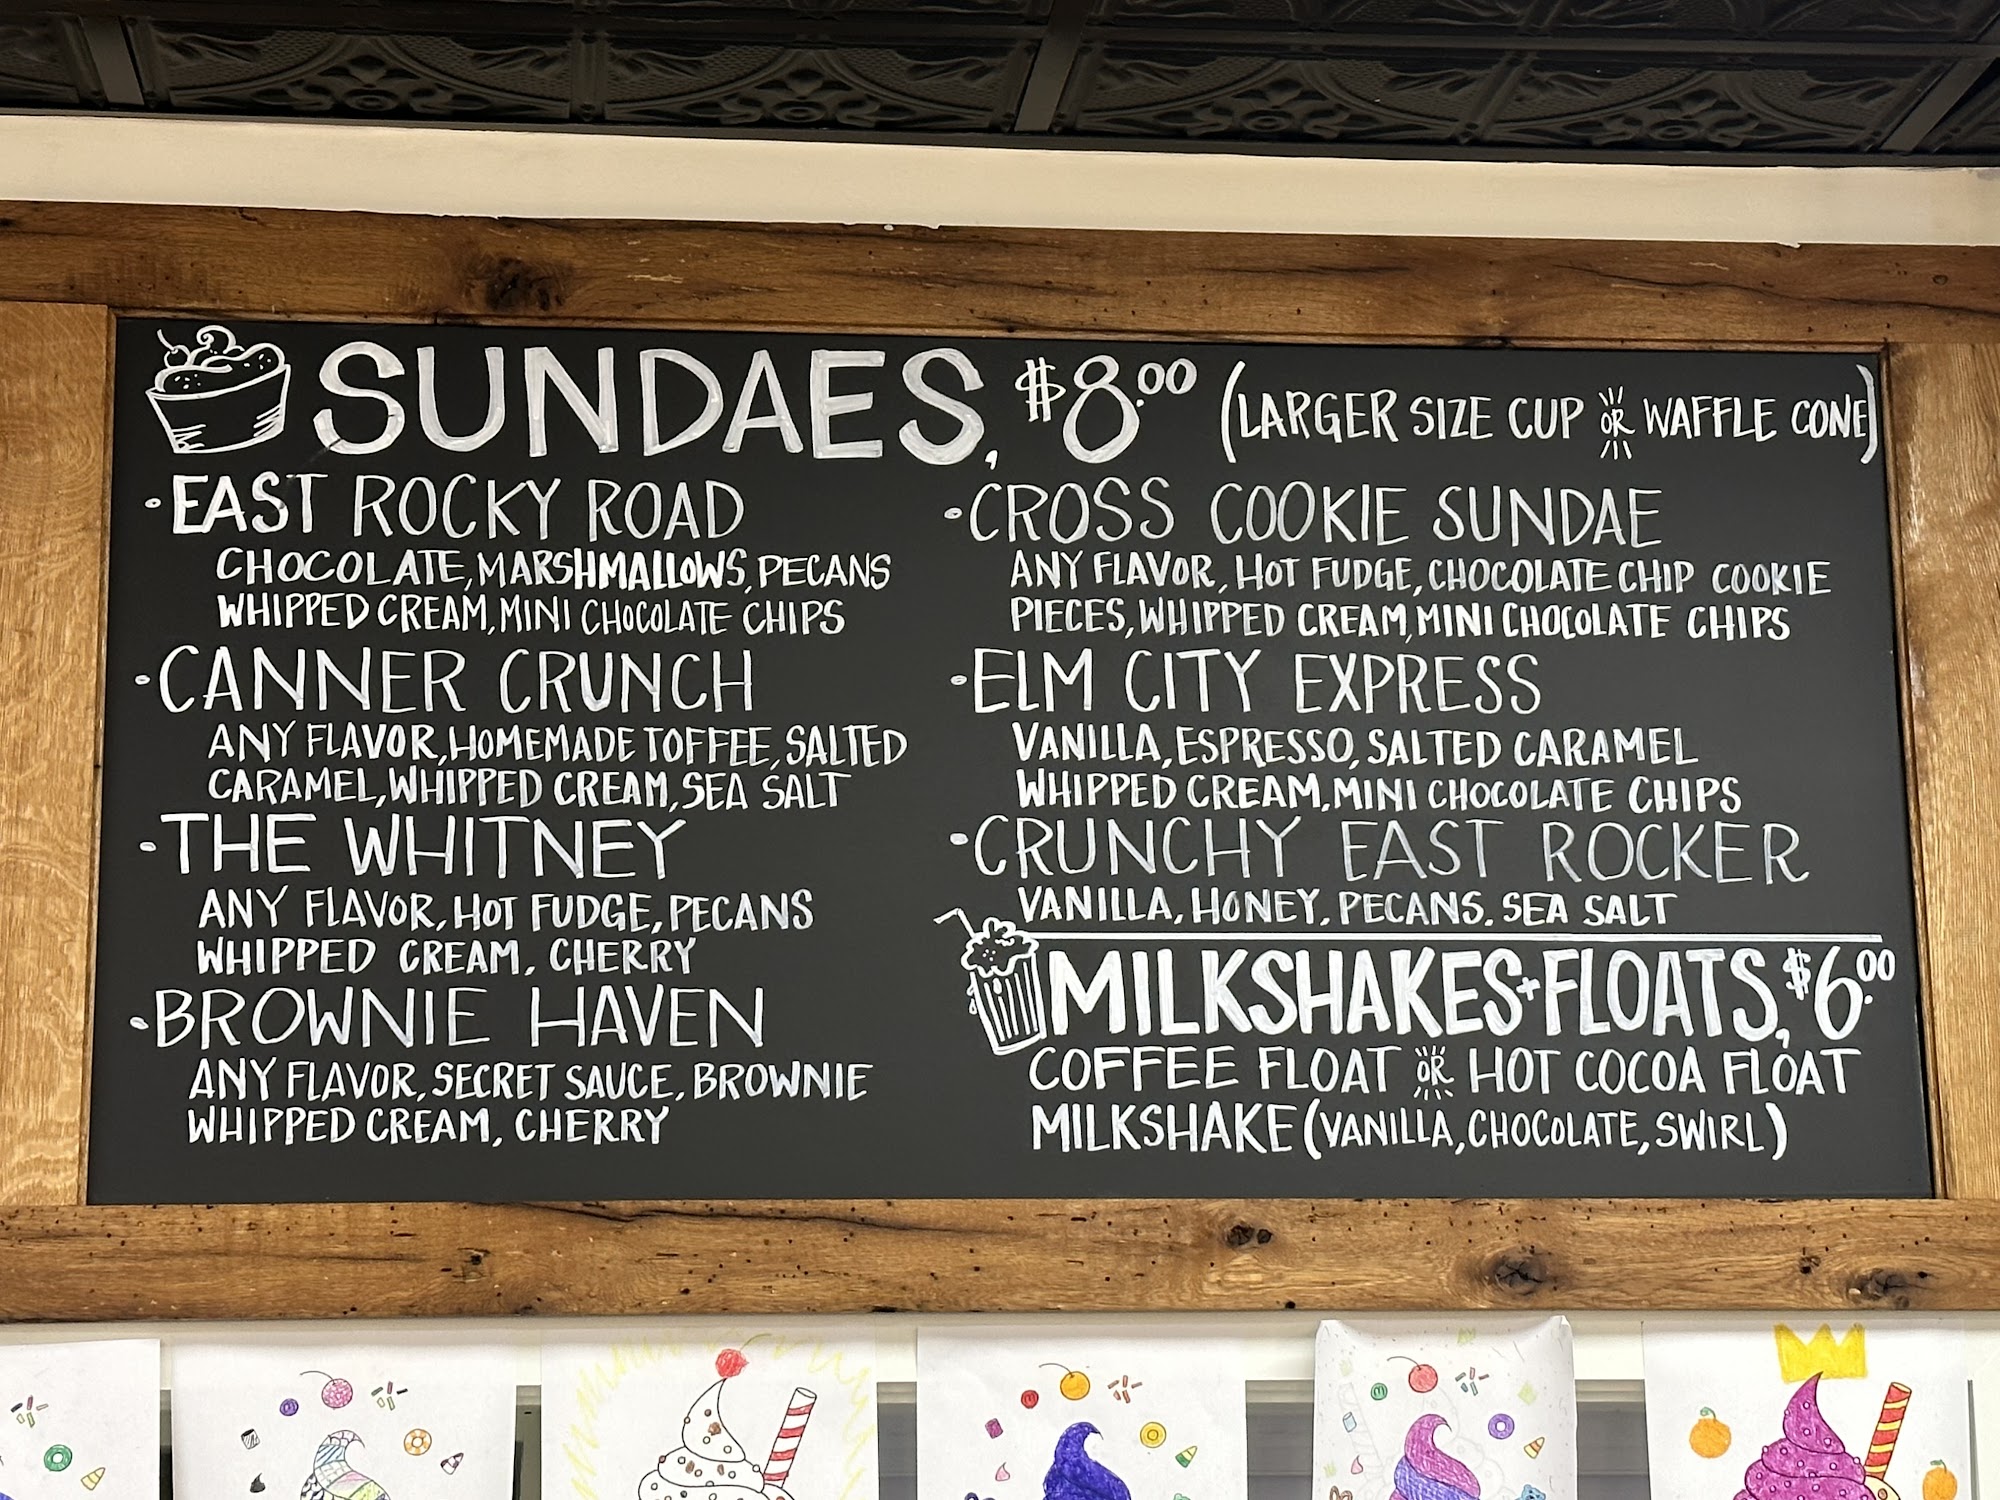 SUNDAES, $8.00 (LARGER SIZE CUP OR WAFFLE CONE)
• EAST ROCKY ROAD
CHOCOLATE, MARSHMALLOWS, PECANS
WHIPPED CREAM, MINI CHOCOLATE CHIPS
• CANNER CRUNCH
ANY FLAVOR, HOMEMADE TOFFEE, SALTED
CARAMEL, WHIPPED CREAM, SEA SALT
• THE WHITNEY
ANY FLAVOR, HOT FUDGE, PECANS
WHIPPED CREAM, CHERRY
• BROWNIE HAVEN
ANY FLAVOR, SECRET SAUCE, BROWNIE
WHIPPED CREAM, CHERRY
• CROSS COOKIE SUNDAE
ANY FLAVOR, HOT FUDGE, CHOCOLATE CHIP COOKIE
PIECES, WHIPPED CREAM, MINI CHOCOLATE CHIPS
• ELM CITY EXPRESS
VANILLA, ESPRESSO, SALTED CARAMEL
WHIPPED CREAM, MINI CHOCOLATE CHIPS
• CRUNCHY EAST ROCKER
VANILLA, HONEY, PECANS, SEA SALT
MILKSHAKES + FLOATS, $6.00
COFFEE FLOAT OR HOT COCOA FLOAT
MILKSHAKE (VANILLA, CHOCOLATE, SWIRL)